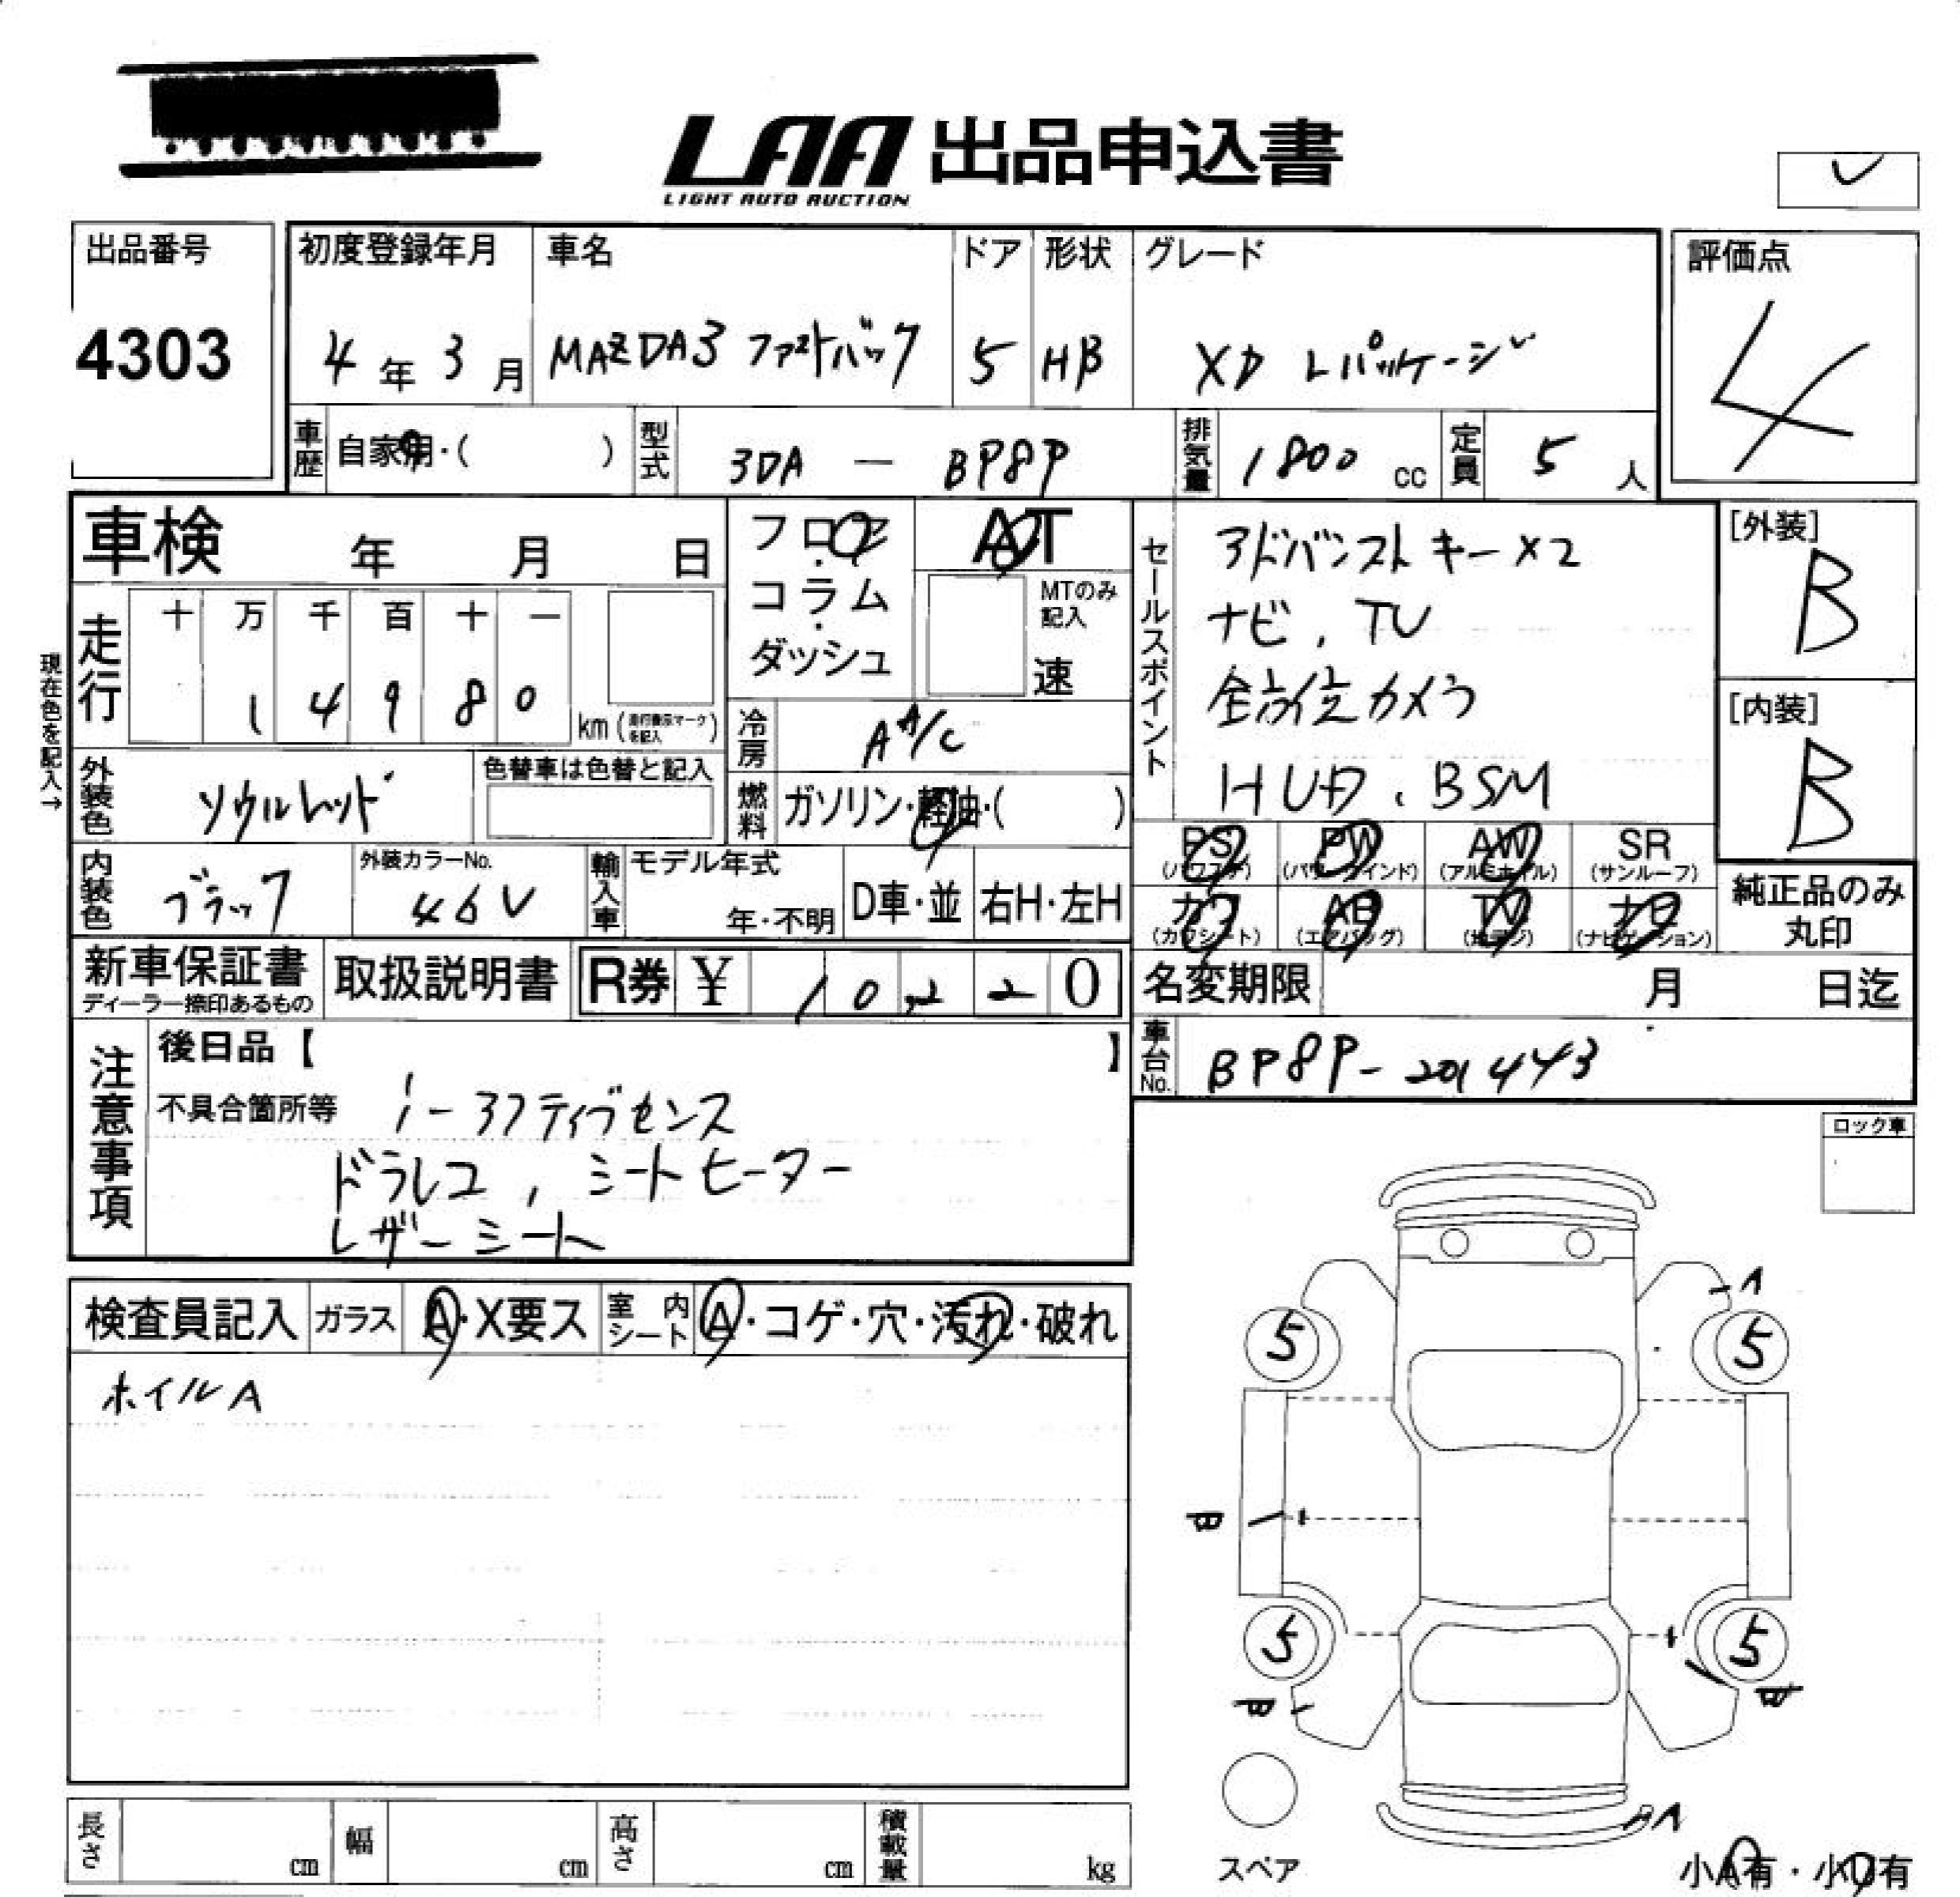 LAA 出品申込書
LIGHT AUTO AUCTION
出品番号
4303
初度登録年月
4年 3月
車名
MAZDA3 ファストバック
ドア
5
形状
HB
グレード
XD Lパッケージ
評価点
4
車歴 自家用・( )
型式 3DA — BP8P
排気量 1800 cc
定員 5 人
車検 年 月 日
フロア・コラム・ダッシュ
AT
MTのみ記入
速
セールスポイント
アドバンストキー×2
ナビ、TV
全方位カメラ
HUD、BSM
[外装]
B
[内装]
B
現在色を記入→
走行
十 万 千 百 十 一
1 4 9 8 0
km (走行表示マークを記入)
冷房 AA/C
外装色 ソウルレッド
色替車は色替と記入
燃料 ガソリン・軽油・( )
PS (パワステ)
PW (パワーウインド)
AW (アルミホイル)
SR (サンルーフ)
カワ (カワシート)
AB (エアバッグ)
TV (地デジ)
ナビ (ナビゲーション)
純正品のみ丸印
内装色 ブラック
外装カラーNo.
46V
輸入車 モデル年式
年・不明
D車・並
右H・左H
新車保証書
ディーラー捺印あるもの
取扱説明書
R券 ¥ 10,220
名変期限 月 日迄
車台No. BP8P-201443
注意事項
後日品【 】
不具合箇所等 i-アクティブセンス
ドラレコ、シートヒーター
レザーシート
ロック車
検査員記入 ガラス A・X要ス 室内シート A・コゲ・穴・汚れ・破れ
ホイルA
A
5
5
B
5
5
B
B
A
スペア
小A有・小U有
長さ cm 幅 cm 高さ cm 積載量 kg